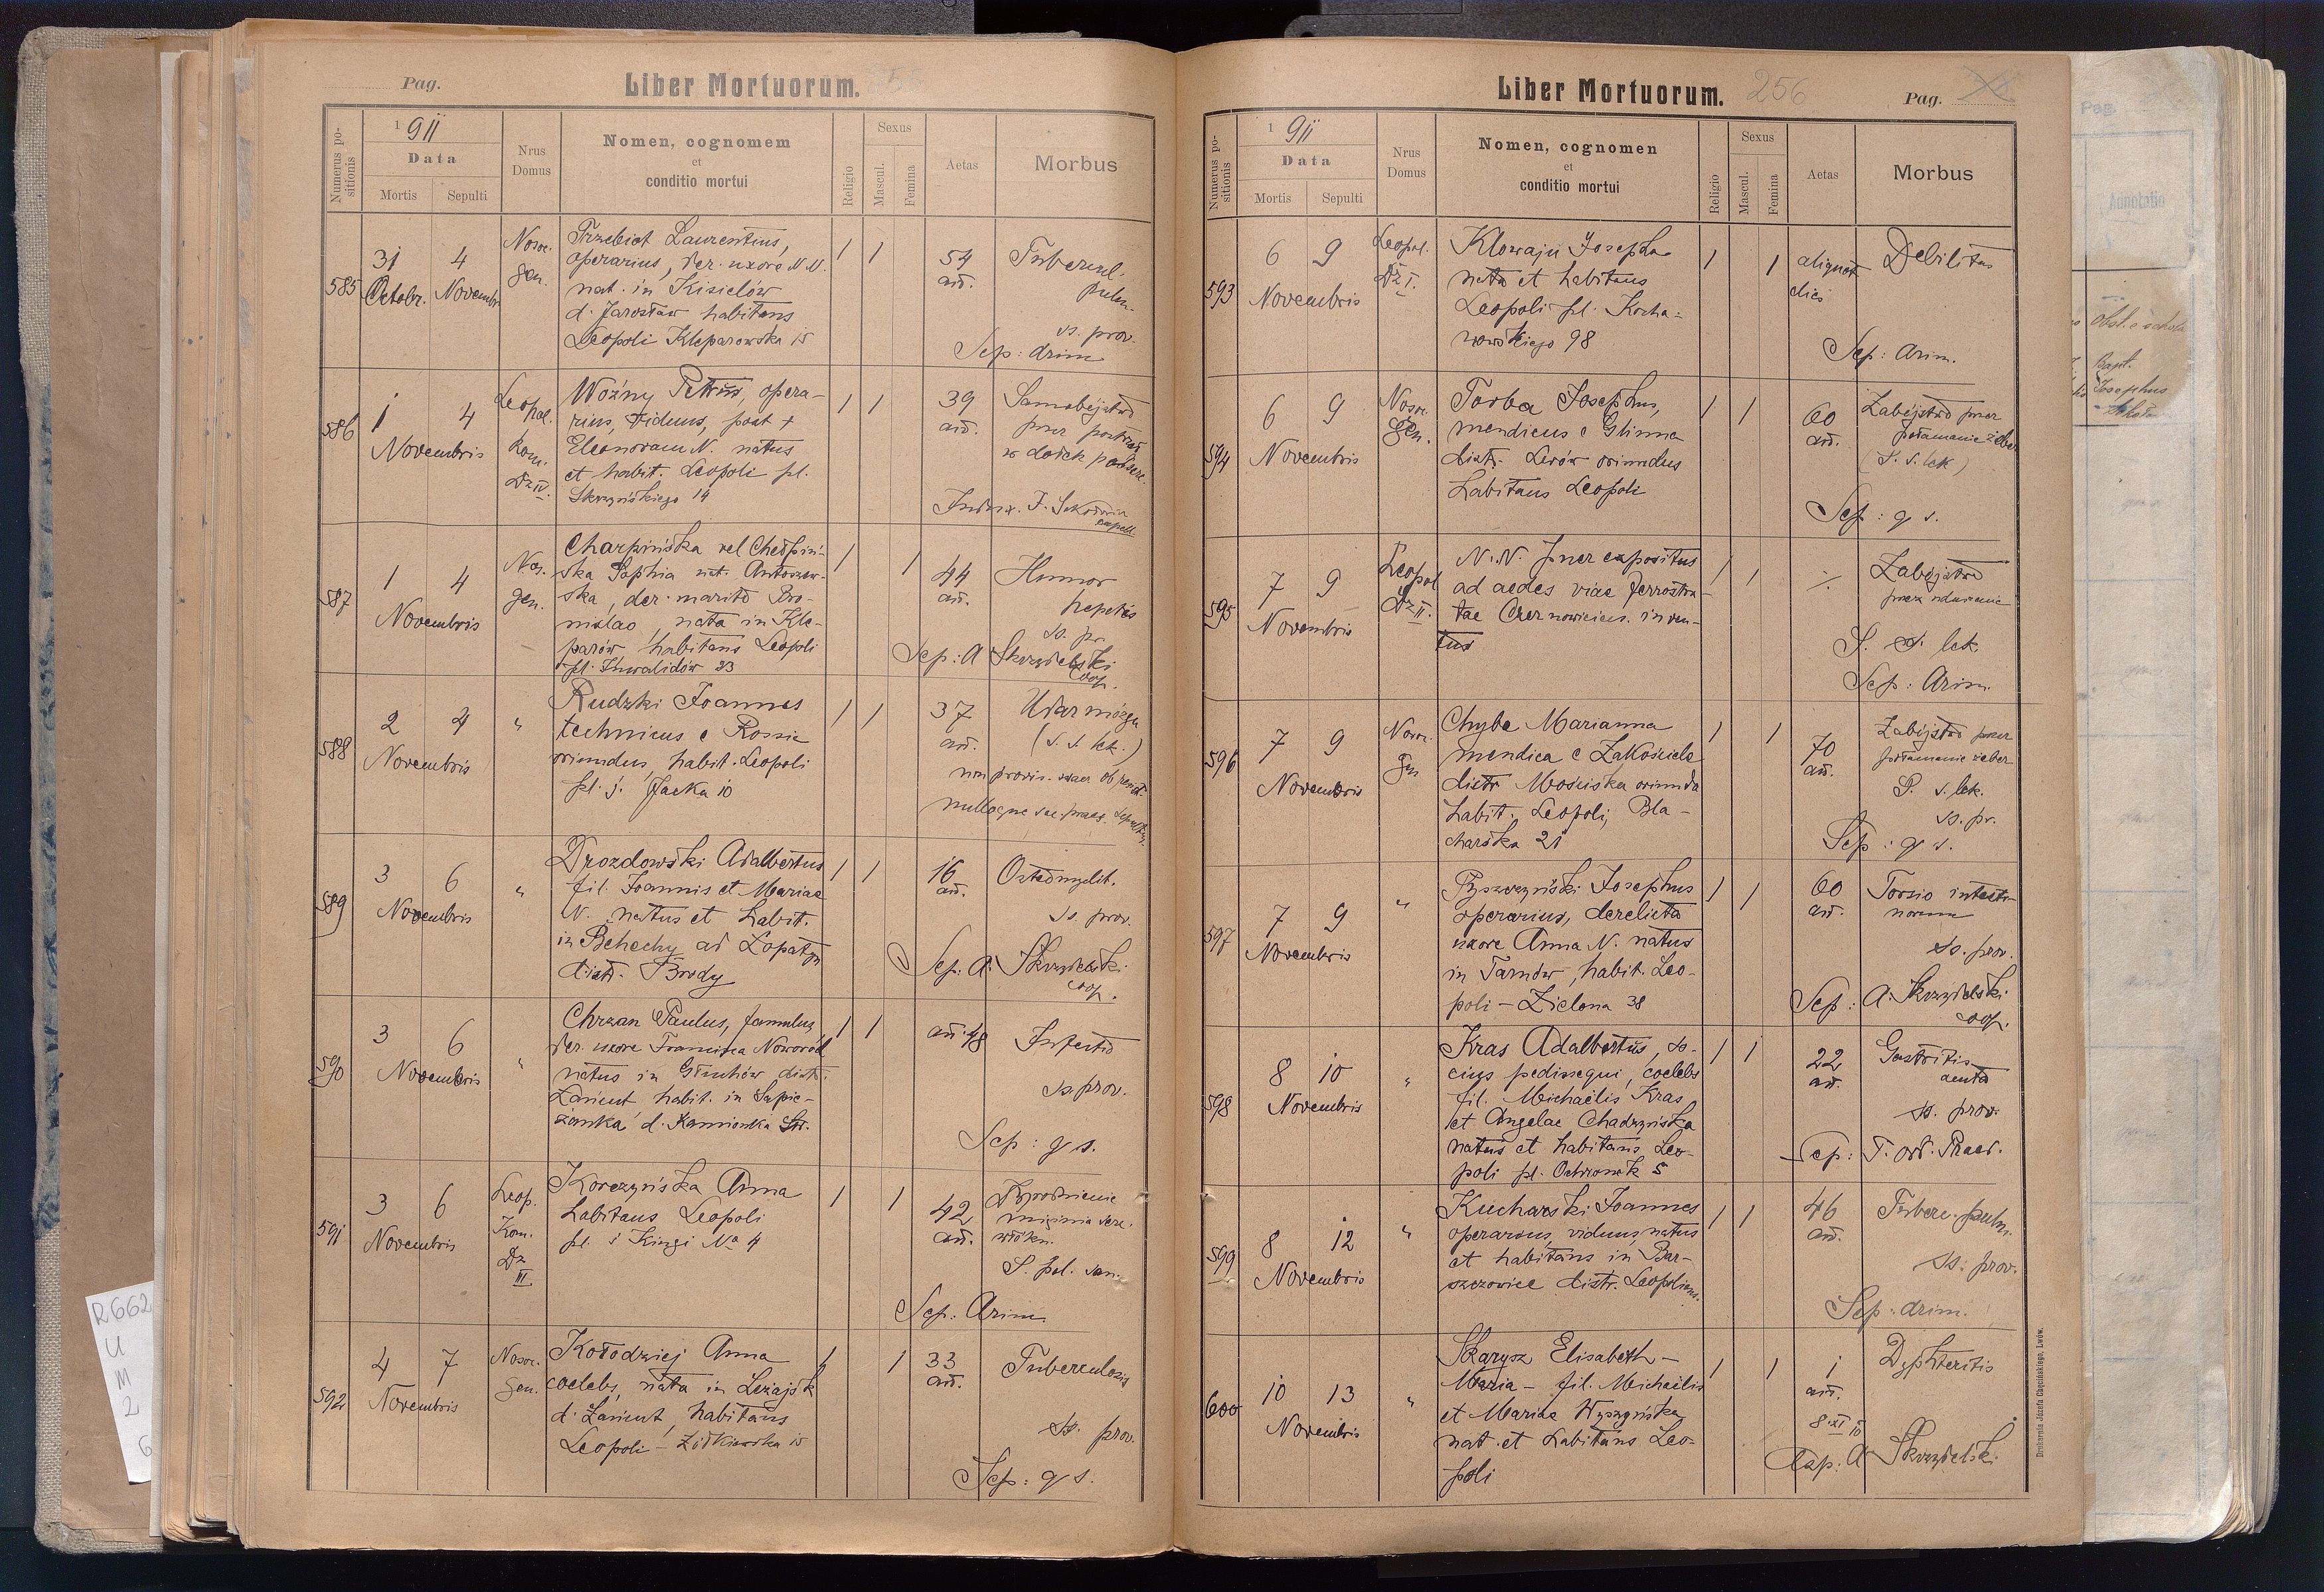 Pag.
Liber Mortuorum.
Numerus po-
sitionis
1911
Data
Mortis
Sepulti
Nrus
Domus
Nomen, cognomem
et
conditio mortui
Religio
Sexus
Mascul.
Femina
Aetas
Morbus
585
31 4
Octobr. Novembr.
Nosoc.
gen.
Trzebiat Laurentius,
operarius, der. uxore N.N.
nat. in Kisielów
d. Jarosław habitans
Leopoli Kleparowska 15
1 1
54
an.
Tubercul.
pulm.
ss. prov.
Sep: Arim
586
1 4
Novembris
Leopol.
Kom.
Dz IV.
Woźny Petrus, opera-
rius, viduus, post +
Eleonoram N. natus
et habit. Leopoli pl.
Skrzyńskiego 14
1 1
39
an.
Samobójstwo
przez postrzał
587
1 4
Novembris
Nos.
gen.
Charpińska vel Chełpiń-
ska Sophia nat. Antoszew-
ska, der. marito Bro-
nislao, nata in Kle-
parów, habitans Leopoli
pl. Inwalidów 23
1 1
44
an.
Humor
hepatis
ss. pr.
Sep: A Skrzydelski
coop.
588
2 4
Novembris
"
Rudzki Joannes
technicus e Rossia
oriundus, habit. Leopoli
pl. ś. Jacka 10
1 1
37
an.
Udar mózgu
(S. s. lek.)
589
3 6
Novembris
"
Drozdowski Adalbertus
fil. Joannis et Mariae
N. natus et habit.
in Behechy ad Łopatyn
distr. Brody
1 1
16
an.
Osteomyelit.
ss. prov.
Sep: A. Skrzydelski
coop.
590
3 6
Novembris
"
Chrzan Paulus, famulus,
der. uxore Francisca
natus in Głuchów distr.
Łańcut habit. in Sapie-
żanka d. Kamionka Str.
1 1
an. 48
Infectio
ss. prov.
Sep: g s.
591
3 6
Novembris
Leop.
Kom.
Dz
III
Korczyńska Anna
habitans Leopoli
pl. ś Kingi No 4
1 1
42
an.
Zwyrodnienie
mięśnia serc.
włókn.
S. pol. san.
Sep: Arim.
592
4 7
Novembris
Nosoc.
gen.
Kołodziej Anna
coelebs, nata in Leżajsk
d. Łańcut, habitans
Leopoli – Żółkiewska 15
1 1
33
an.
Tuberculosis
ss. prov.
Sep: g s.
Liber Mortuorum.
256
Pag.
Numerus po-
sitionis
1911
Data
Mortis
Sepulti
Nrus
Domus
Nomen, cognomen
et
conditio mortui
Religio
Sexus
Mascul.
Femina
Aetas
Morbus
593
6 9
Novembris
Leopol.
Dz I.
Klowaju Josepha
nata et habitans
Leopoli pl. Kocha-
nowskiego 98
1 1
aliquot
dies
Debilitas
Sep: Arim.
594
6 9
Novembris
Nosoc.
gen.
Torba Josephus,
mendicus e Glinna
distr. Lwów oriundus
habitans Leopoli
1 1
60
an.
Zabójstwo przez
połamanie żeber
(S. s. lek)
Sep: g s.
595
7 9
Novembris
Leopol
Dz II.
N. N. puer expositus
ad aedes viae ferrostra-
tae Czernowicien. inven-
tus
1 1
Zabójstwo
przez uduszenie
S. s. lek.
Sep: Arim.
596
7 9
Novembris
Nosoc.
gen
Chyba Marianna
mendica e Zakościele
distr Mościska oriunda
habit. Leopoli, Bla-
charska 21
1 1
70
an.
Zabójstwo przez
połamanie żeber
S. s. lek.
ss. pr.
Sep: g s.
597
7 9
Novembris
"
Pyszczyński Josephus
operarius, derelicta
uxore Anna N. natus
in Tarnów, habit. Leo-
poli – Zielona 38
1 1
60
an.
Torsio intesti-
norum
ss. prov.
Sep: A. Skrzydelski
coop.
598
8 10
Novembris
"
Kras Adalbertus, so-
cius pedissequi, coelebs
fil. Michaelis Kras
et Angelae Chadzyńska
natus et habitans Leo-
poli pl. Ochronek 5
1 1
22
an.
Gastritis
acuta
ss. prov.
Sep: T. ord. Praed.
599
8 12
Novembris
"
Kucharski Joannes
operarius, viduus, natus
et habitans in Bar-
szczowice distr. Leopoliens.
1 1
46
an.
Tuberc. pulm.
ss. prov.
Sep: Arim.
600
10 13
Novembris
"
Skarysz Elisabeth –
Maria – fil. Michaelis
et Mariae Wyszyńska
nat. et habitans Leo-
poli
1 1
1
an.
Dyphteritis
8 XI 10
Cap: A Skrzydelski
Drukarnia Józefa Chęcińskiego, Lwów.
Pag.
Annotatio
Josephus
R662
U
M
2
6